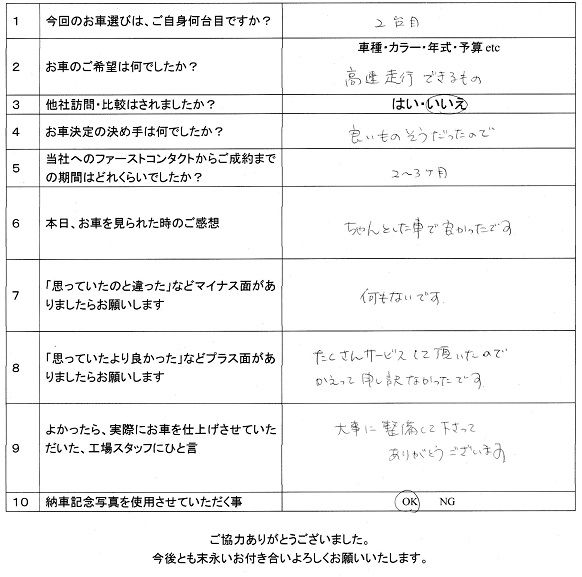 1 今回のお車選びは、ご自身何台目ですか? 2台目
車種・カラー・年式・予算 etc
2 お車のご希望は何でしたか? 高速走行できるもの
3 他社訪問・比較はされましたか? はい・いいえ
4 お車決定の決め手は何でしたか? 良いものそうだったので
5 当社へのファーストコンタクトからご成約まで
の期間はどれくらいでしたか? 2〜3ヶ月
6 本日、お車を見られた時のご感想 ちゃんとした車で良かったです
7 「思っていたのと違った」などマイナス面があ
りましたらお願いします
何もないです。
8 「思っていたより良かった」などプラス面があ
りましたらお願いします
たくさんサービスして頂いたので
かえって申し訳なかったです
9 よかったら、実際にお車を仕上げさせていた
だいた、工場スタッフにひと言
大事に整備して下さって
ありがとうございます
10 納車記念写真を使用させていただく事 OK NG
ご協力ありがとうございました。
今後とも末永いお付き合いよろしくお願いいたします。